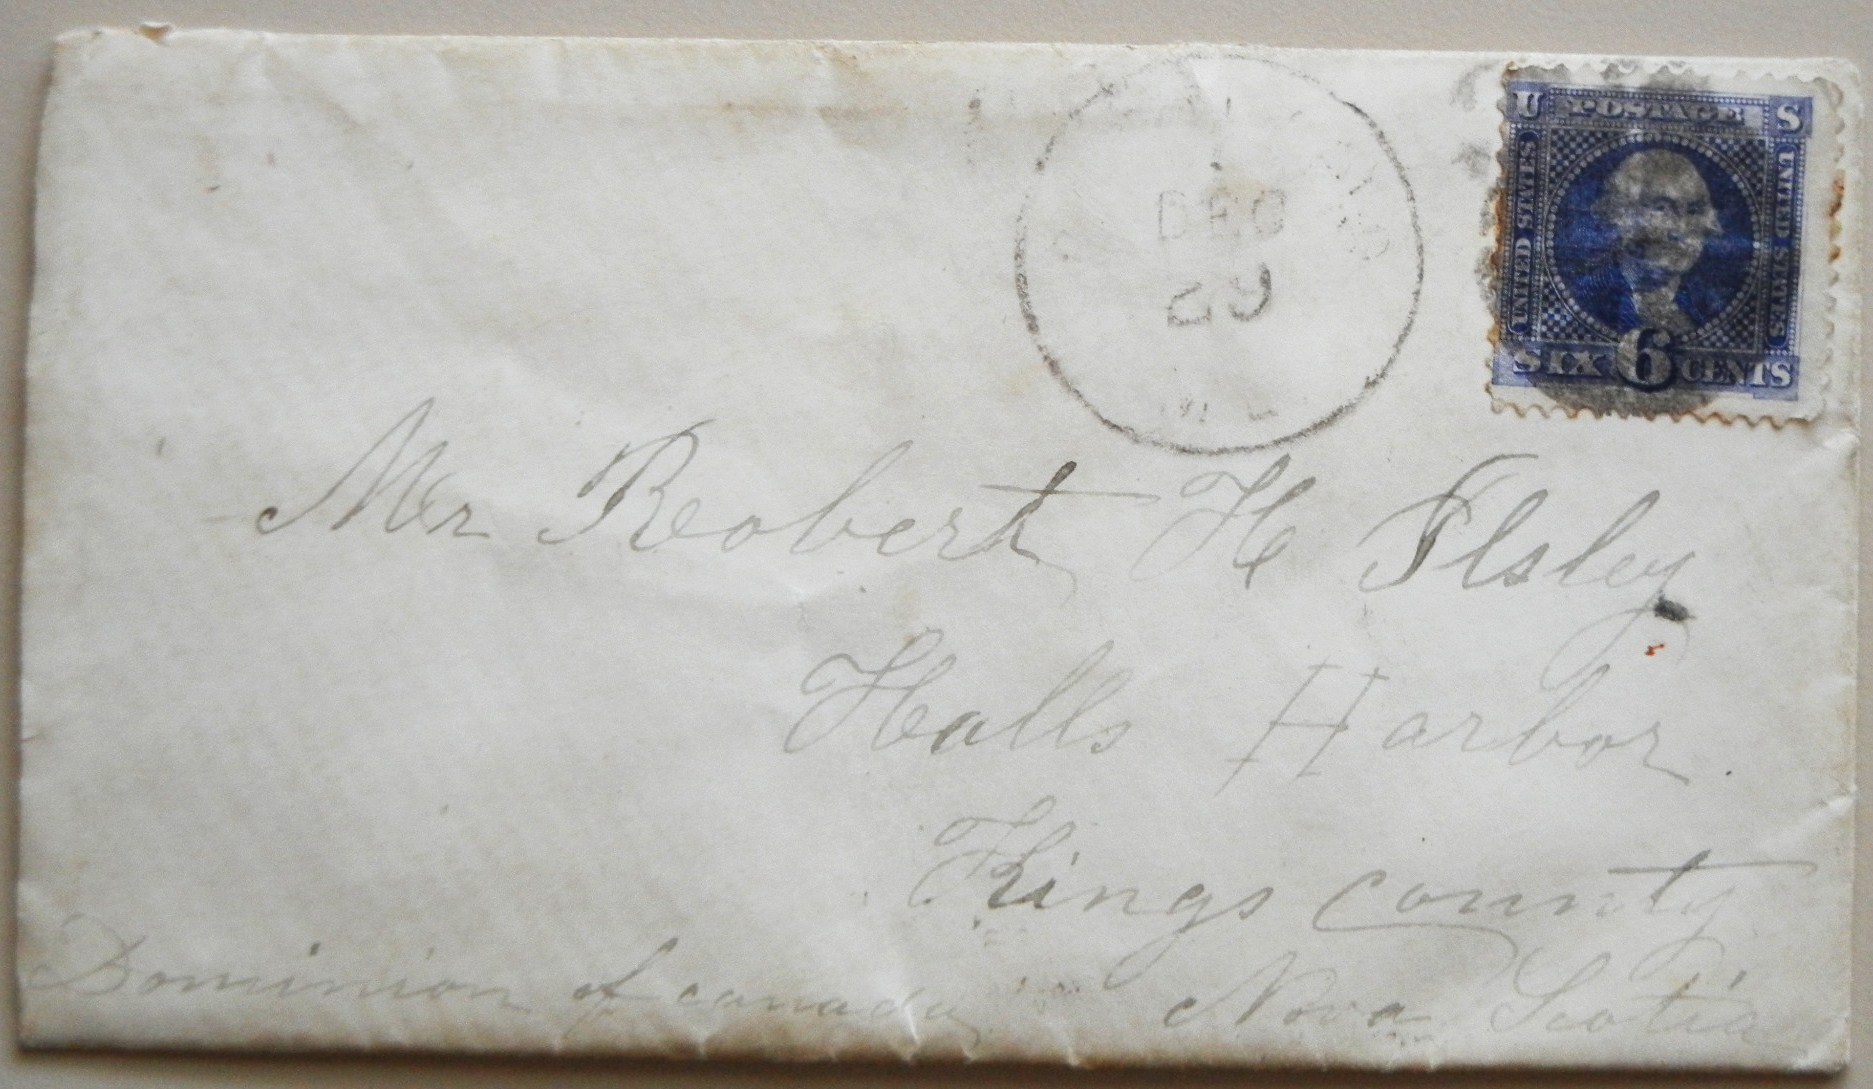 U POSTAGE S
UNITED STATES
UNITED STATES
SIX 6 CENTS
DEC
29
Mr Robert H Ilsley
Halls Harbor.
Kings county
Dominion of canada Nova Scotia